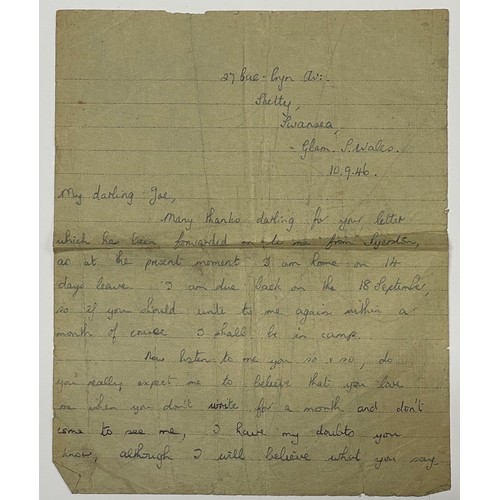 27 Cae-Bryn Av:.
Sketty,
Swansea,
Glam. S. Wales.
10.9.46.
My darling Joe,
Many thanks darling for your letter
which has been forwarded on to me from
as at the present moment I am home on 14
days leave. I am due back on the 18 September,
so if you should write to me again within a
month of course I shall be in camp.
Now listen to me you so & so, do
you really expect me to believe that you love
me when you don't write for a month and don't
come to see me, I have my doubts you
know, although I will believe what you say